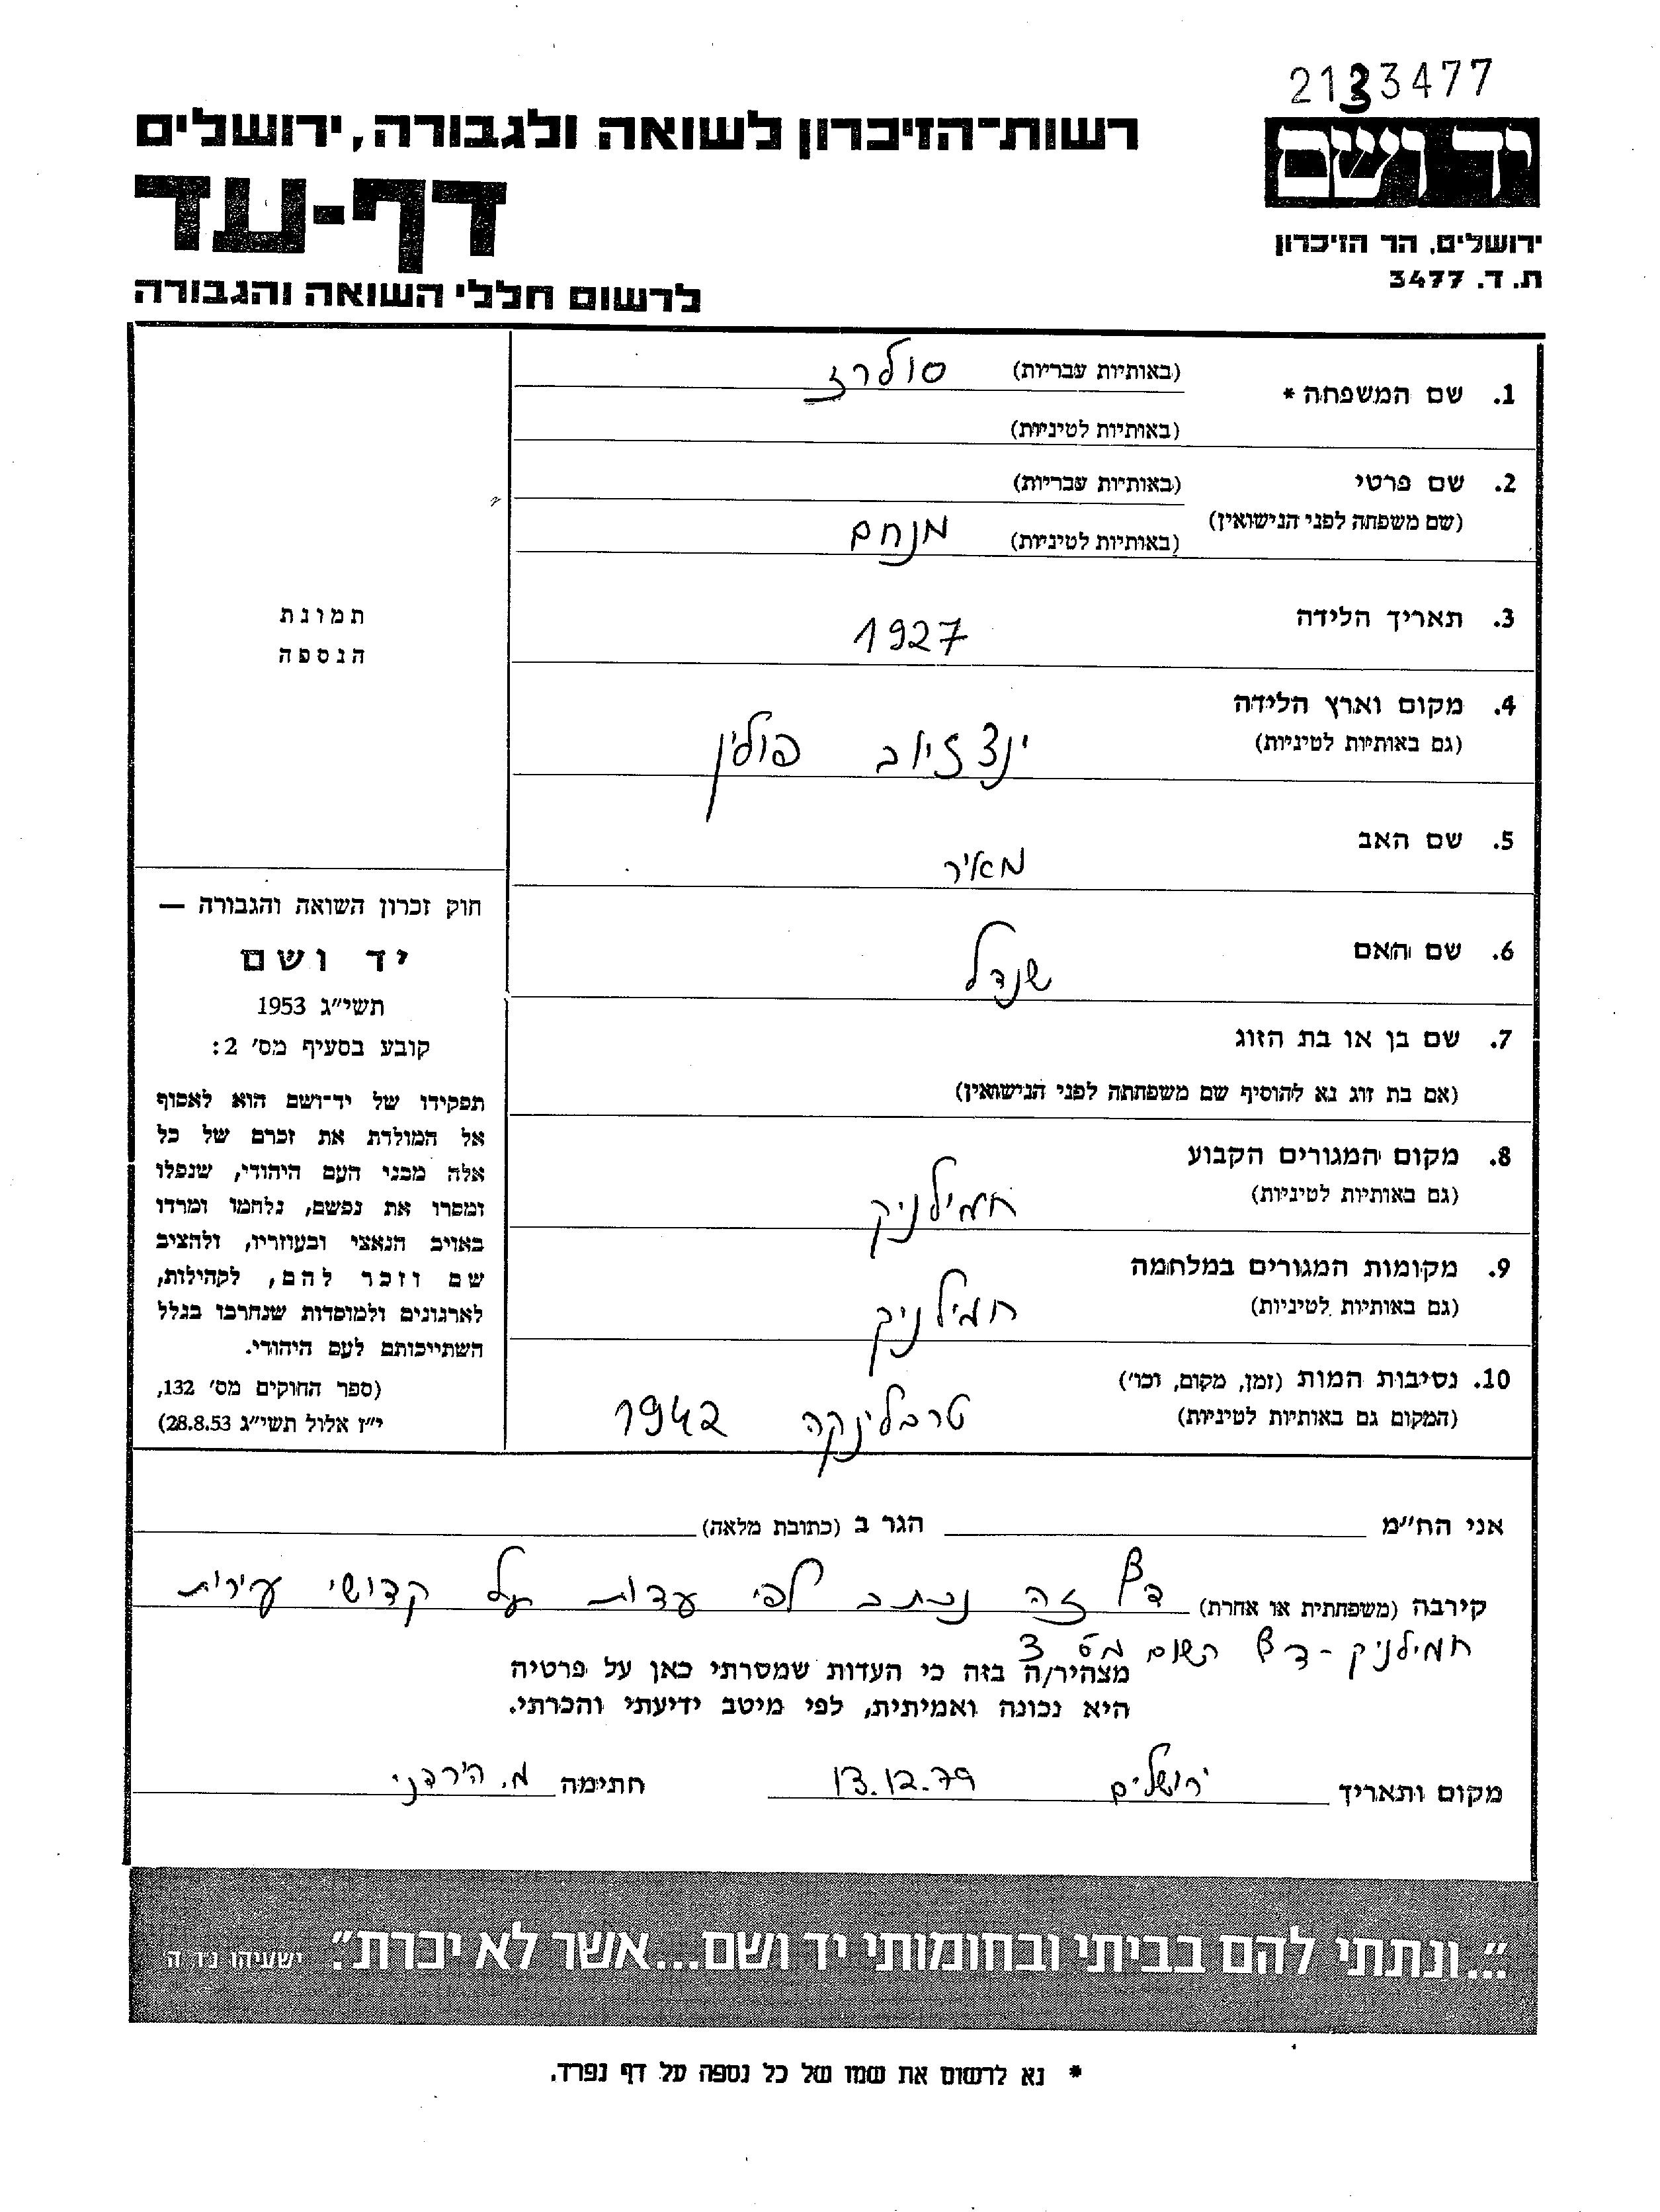 2133477
יד ושם
ירושלים, הר הזיכרון
ת. ד. 3477
רשות־הזיכרון לשואה ולגבורה, ירושלים
דף-עד
לרשום חללי השואה והגבורה
1. שם המשפחה * (באותיות עבריות) סולרז
(באותיות לטיניות)
2. שם פרטי (באותיות עבריות)
(שם משפחה לפני הנישואין) (באותיות לטיניות) מנחם
3. תאריך הלידה 1927
4. מקום וארץ הלידה
(גם באותיות לטיניות) ינדזיוב פולין
5. שם האב מאיר
6. שם האם שנדל
7. שם בן או בת הזוג
(אם בת זוג נא להוסיף שם משפחתה לפני הנישואין)
8. מקום המגורים הקבוע
(גם באותיות לטיניות) חמילניק
9. מקומות המגורים במלחמה
(גם באותיות לטיניות) חמילניק
10. נסיבות המות (זמן, מקום, וכו')
(המקום גם באותיות לטיניות) טרבלינקה 1942
תמונת
הנספה
חוק זכרון השואה והגבורה —
יד ושם
תשי״ג 1953
קובע בסעיף מס׳ 2:
תפקידו של יד־ושם הוא לאסוף
אל המולדת את זכרם של כל
אלה מבני העם היהודי, שנפלו
ומסרו את נפשם, נלחמו ומרדו
באויב הנאצי ובעוזריו, ולהציב
שם וזכר להם, לקהילות,
לארגונים ולמוסדות שנחרבו בגלל
השתייכותם לעם היהודי.
(ספר החוקים מס׳ 132,
י״ז אלול תשי״ג 28.8.53)
אני הח״מ הגר ב (כתובת מלאה)
קירבה (משפחתית או אחרת) דף זה נכתב לפי עדות על קדושי עירות
חמילניק - דף רשום מס 3
מצהיר/ה בזה כי העדות שמסרתי כאן על פרטיה
היא נכונה ואמיתית, לפי מיטב ידיעתי והכרתי.
מקום ותאריך ירושלים 13.12.79 חתימה מ. הירדני
״...ונתתי להם בביתי ובחומותי יד ושם...אשר לא יכרת״. ישעיהו נו, ה
* נא לרשום את שמו של כל נספה על דף נפרד.